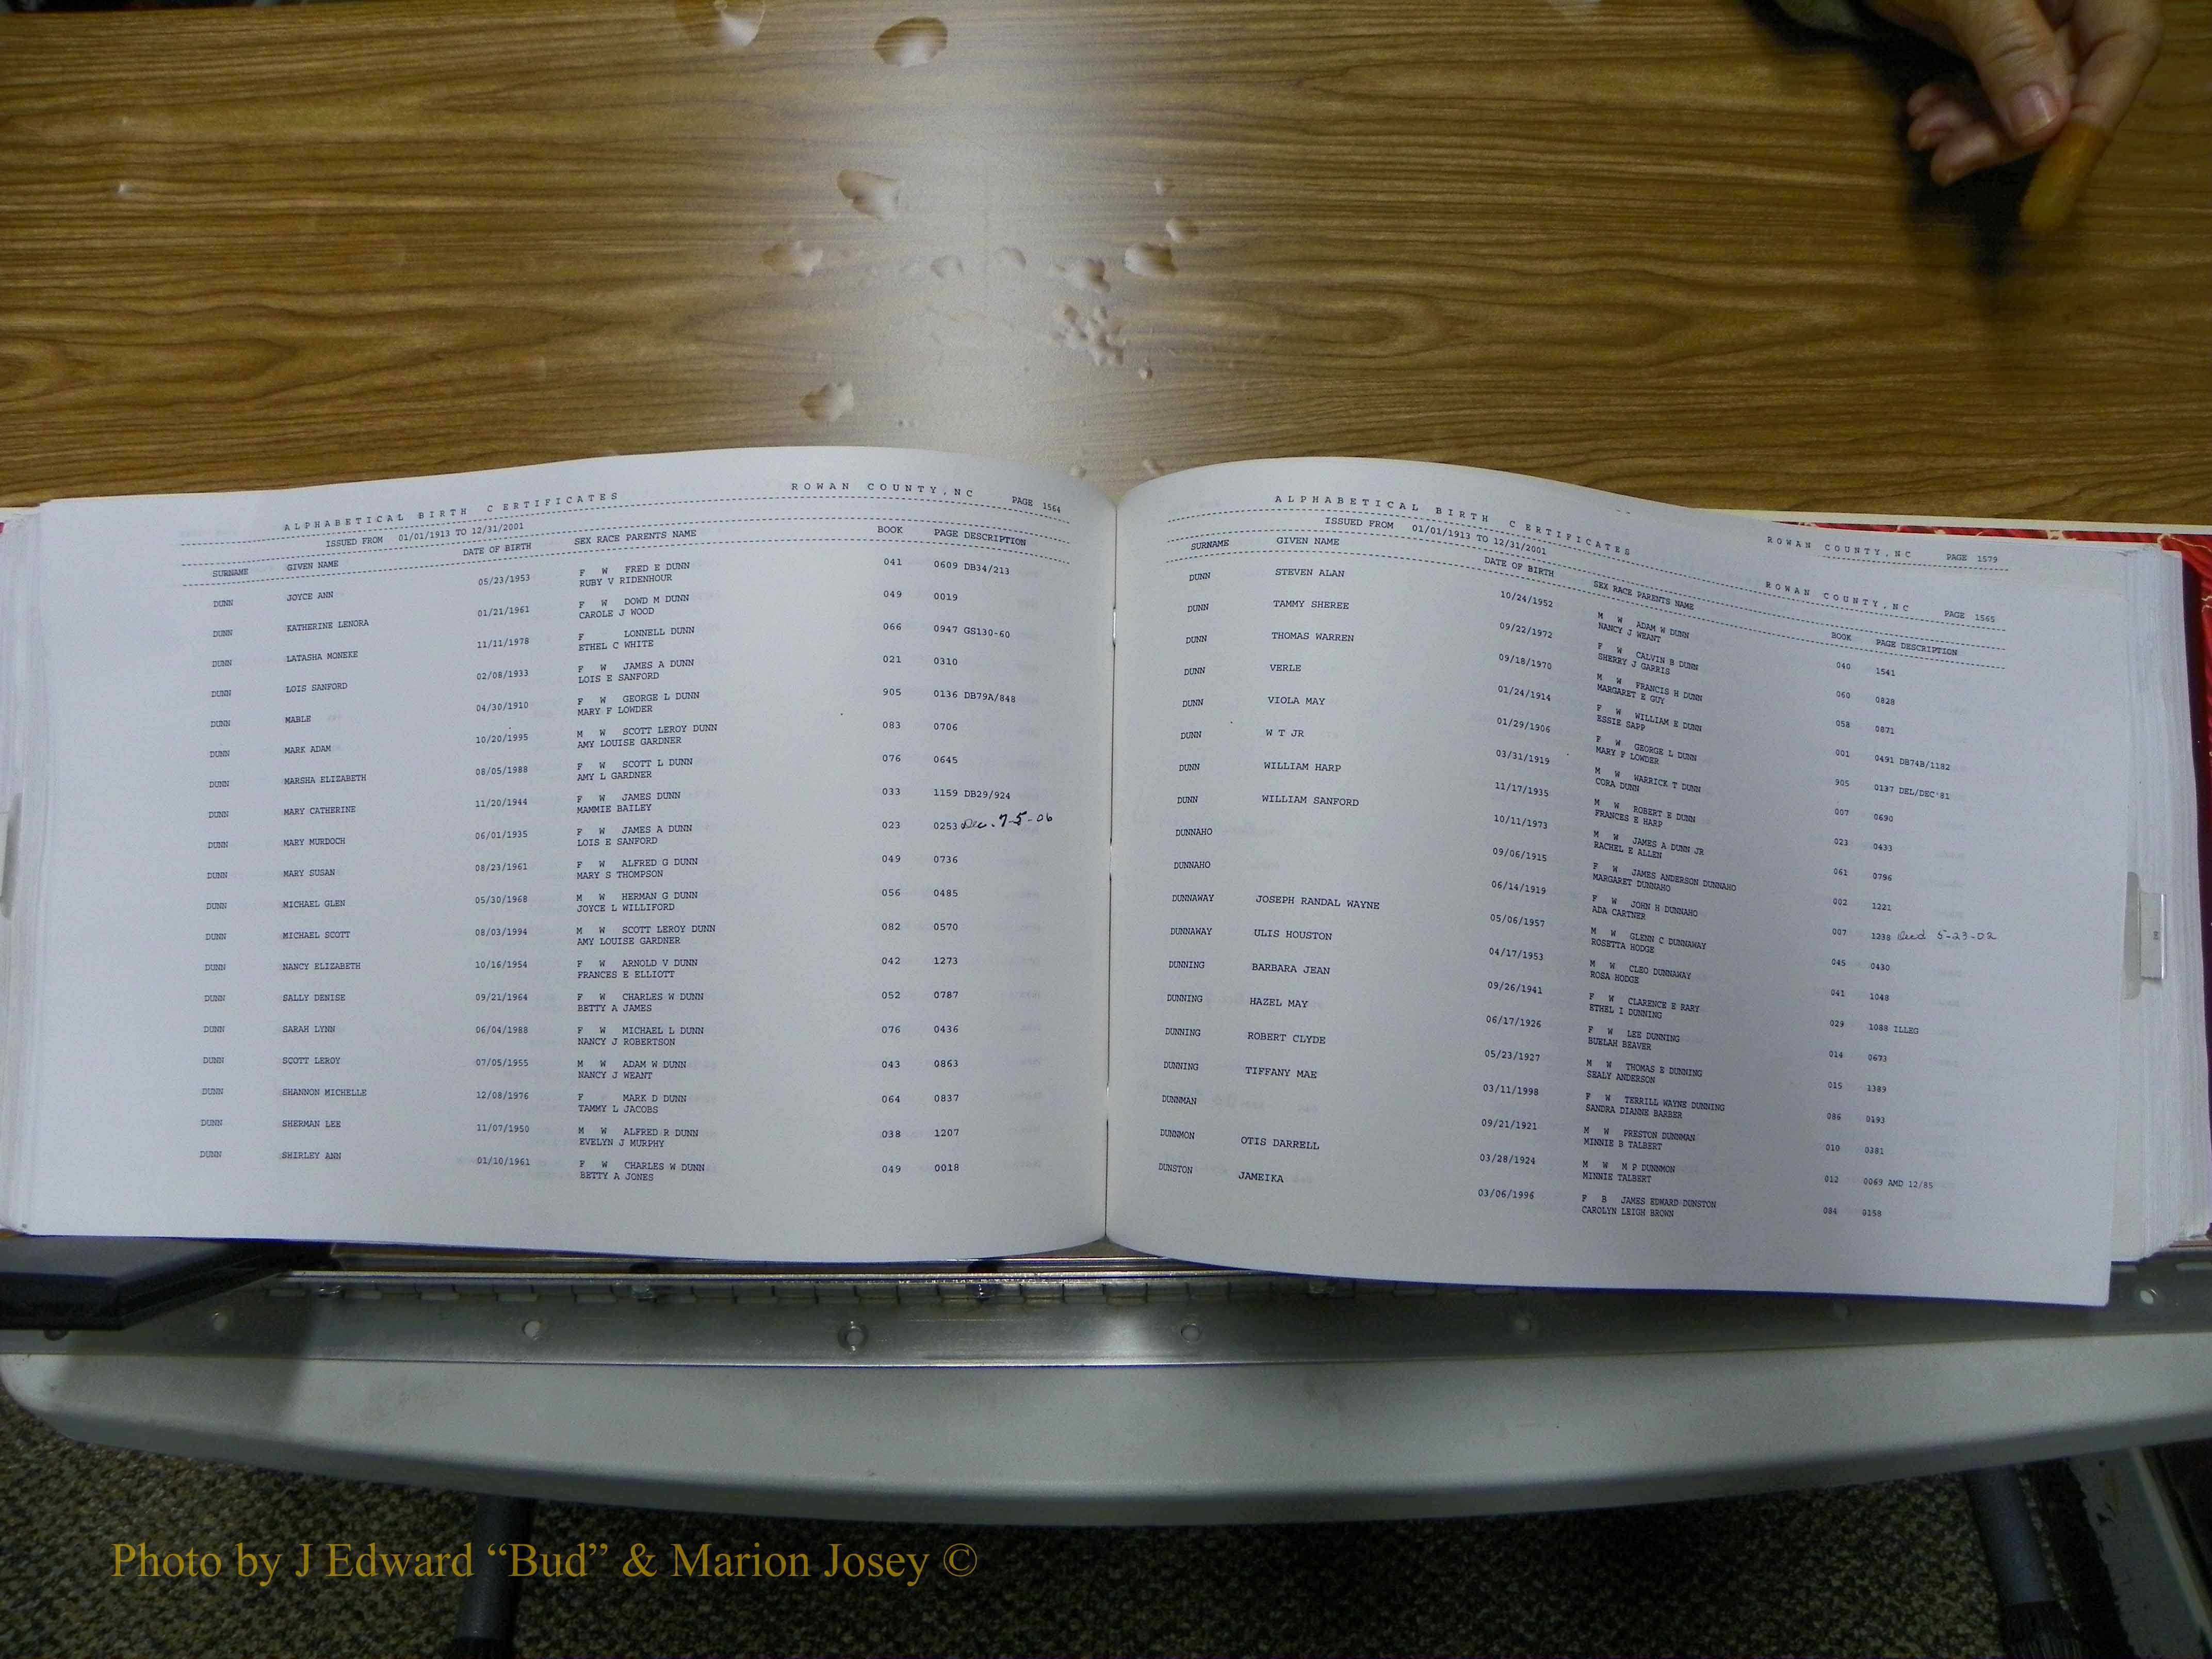 ALPHABETICAL BIRTH CERTIFICATES ROWAN COUNTY,NC PAGE 1564
ISSUED FROM 01/01/1913 TO 12/31/2001
SURNAME GIVEN NAME DATE OF BIRTH SEX RACE PARENTS NAME BOOK PAGE DESCRIPTION
DUNN JOYCE ANN 05/23/1953 F W FRED E DUNN 041 0609 DB34/213
RUBY V RIDENHOUR
DUNN KATHERINE LENORA 01/21/1961 F W DOWD M DUNN 049 0019
CAROLE J WOOD
DUNN LATASHA MONEKE 11/11/1978 F LONNELL DUNN 066 0947 GS130-60
ETHEL C WHITE
DUNN LOIS SANFORD 02/08/1933 F W JAMES A DUNN 021 0310
LOIS E SANFORD
DUNN MABLE 04/30/1910 F W GEORGE L DUNN 905 0136 DB79A/848
MARY F LOWDER
DUNN MARK ADAM 10/20/1995 M W SCOTT LEROY DUNN 083 0706
AMY LOUISE GARDNER
DUNN MARSHA ELIZABETH 08/05/1988 F W SCOTT L DUNN 076 0645
AMY L GARDNER
DUNN MARY CATHERINE 11/20/1944 F W JAMES DUNN 033 1159 DB29/924
MAMMIE BAILEY
DUNN MARY MURDOCH 06/01/1935 F W JAMES A DUNN 023 0253 Dec. 7-5-06
LOIS E SANFORD
DUNN MARY SUSAN 08/23/1961 F W ALFRED G DUNN 049 0736
MARY S THOMPSON
DUNN MICHAEL GLEN 05/30/1968 M W HERMAN G DUNN 056 0485
JOYCE L WILLIFORD
DUNN MICHAEL SCOTT 08/03/1994 M W SCOTT LEROY DUNN 082 0570
AMY LOUISE GARDNER
DUNN NANCY ELIZABETH 10/16/1954 F W ARNOLD V DUNN 042 1273
FRANCES E ELLIOTT
DUNN SALLY DENISE 09/21/1964 F W CHARLES W DUNN 052 0787
BETTY A JAMES
DUNN SARAH LYNN 06/04/1988 F W MICHAEL L DUNN 076 0436
NANCY J ROBERTSON
DUNN SCOTT LEROY 07/05/1955 M W ADAM W DUNN 043 0863
NANCY J WEANT
DUNN SHANNON MICHELLE 12/08/1976 F MARK D DUNN 064 0837
TAMMY L JACOBS
DUNN SHERMAN LEE 11/07/1950 M W ALFRED R DUNN 038 1207
EVELYN J MURPHY
DUNN SHIRLEY ANN 01/10/1961 F W CHARLES W DUNN 049 0018
BETTY A JONES
ROWAN COUNTY,NC PAGE 1579
ALPHABETICAL BIRTH CERTIFICATES ROWAN COUNTY,NC PAGE 1565
ISSUED FROM 01/01/1913 TO 12/31/2001
SURNAME GIVEN NAME DATE OF BIRTH SEX RACE PARENTS NAME BOOK PAGE DESCRIPTION
DUNN STEVEN ALAN 10/24/1952 M W ADAM W DUNN 040 1541
NANCY J WEANT
DUNN TAMMY SHEREE 09/22/1972 F W CALVIN B DUNN 060 0828
SHERRY J GARRIS
DUNN THOMAS WARREN 09/18/1970 M W FRANCIS H DUNN 058 0871
MARGARET E GUY
DUNN VERLE 01/24/1914 F W WILLIAM E DUNN 001 0491 DB74B/1182
ESSIE SAPP
DUNN VIOLA MAY 01/29/1906 F W GEORGE L DUNN 905 0137 DEL/DEC'81
MARY F LOWDER
DUNN W T JR 03/31/1919 M W WARRICK T DUNN 007 0690
CORA DUNN
DUNN WILLIAM HARP 11/17/1935 M W ROBERT E DUNN 023 0433
FRANCES E HARP
DUNN WILLIAM SANFORD 10/11/1973 M W JAMES A DUNN JR 061 0796
RACHEL E ALLEN
DUNNAHO 09/06/1915 F W JAMES ANDERSON DUNNAHO 002 1221
MARGARET DUNNAHO
DUNNAHO 06/14/1919 F W JOHN H DUNNAHO 007 1238 Decd 5-23-02
ADA CARTNER
DUNNAWAY JOSEPH RANDAL WAYNE 05/06/1957 M W GLENN C DUNNAWAY 045 0430
ROSETTA HODGE
DUNNAWAY ULIS HOUSTON 04/17/1953 M W CLEO DUNNAWAY 041 1048
ROSA HODGE
DUNNING BARBARA JEAN 09/26/1941 F W CLARENCE E RARY 029 1088 ILLEG
ETHEL I DUNNING
DUNNING HAZEL MAY 06/17/1926 F W LEE DUNNING 014 0673
BUELAH BEAVER
DUNNING ROBERT CLYDE 05/23/1927 M W THOMAS E DUNNING 015 1389
SEALY ANDERSON
DUNNING TIFFANY MAE 03/11/1998 F W TERRILL WAYNE DUNNING 086 0193
SANDRA DIANNE BARBER
DUNNMAN 09/21/1921 M W PRESTON DUNNMAN 010 0381
MINNIE B TALBERT
DUNNMON OTIS DARRELL 03/28/1924 M W M P DUNNMON 012 0069 AMD 12/85
MINNIE TALBERT
DUNSTON JAMEIKA 03/06/1996 F B JAMES EDWARD DUNSTON 084 0158
CAROLYN LEIGH BROWN
Photo by J Edward “Bud” & Marion Josey ©